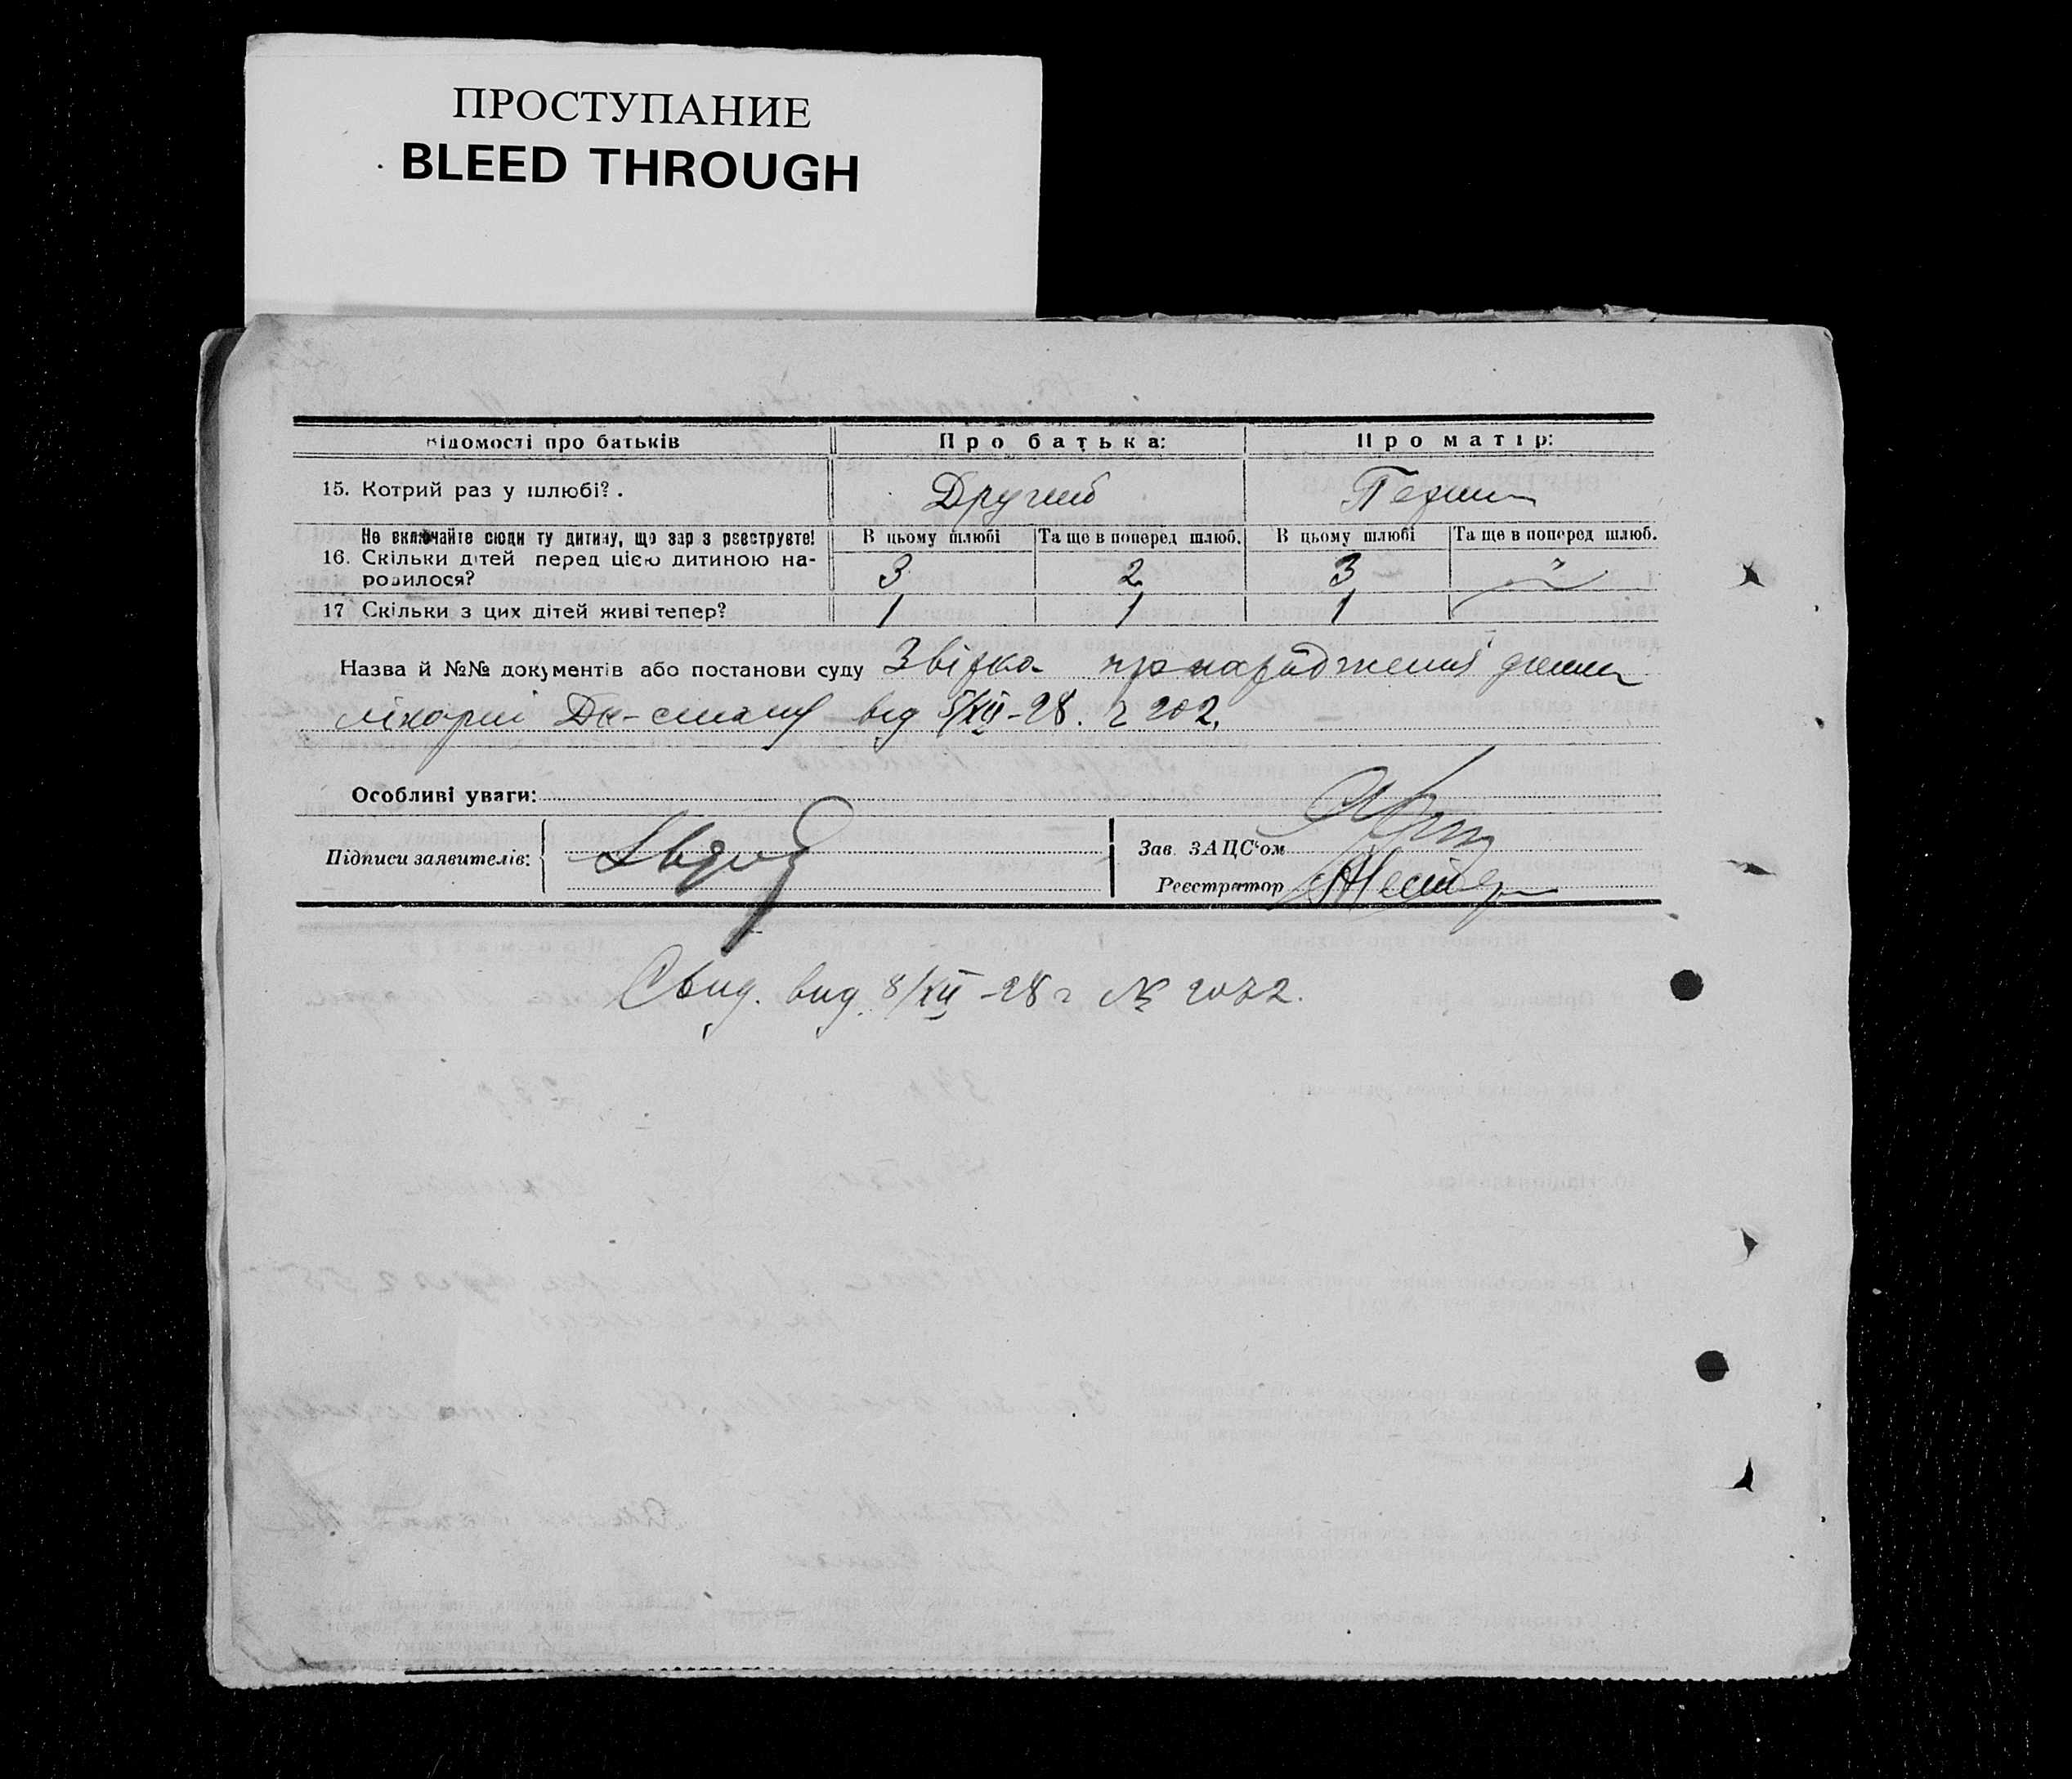 ПРОСТУПАНИЕ
BLEED THROUGH
Відомості про батьків Про батька: Про матір:
15. Котрий раз у шлюбі? . Другий Перший
Не включайте сюди ту дитину, що зараз реєструєте! В цьому шлюбі Та ще в поперед шлюб. В цьому шлюбі Та ще в поперед шлюб.
16. Скільки дітей перед цією дитиною на- 3 2 3 "
родилося?
17 Скільки з цих дітей живі тепер? 1 1 1
Назва й №№ документів або постанови суду Звірка про народження дитини
лікарні Дн-стану від 5/XII-28. ч 202.
Особливі уваги:
Підписи заявителів:
Зав. ЗАЦС'ом
Реєстратор
Свид. выд. 8/XII-28 г № 2022.